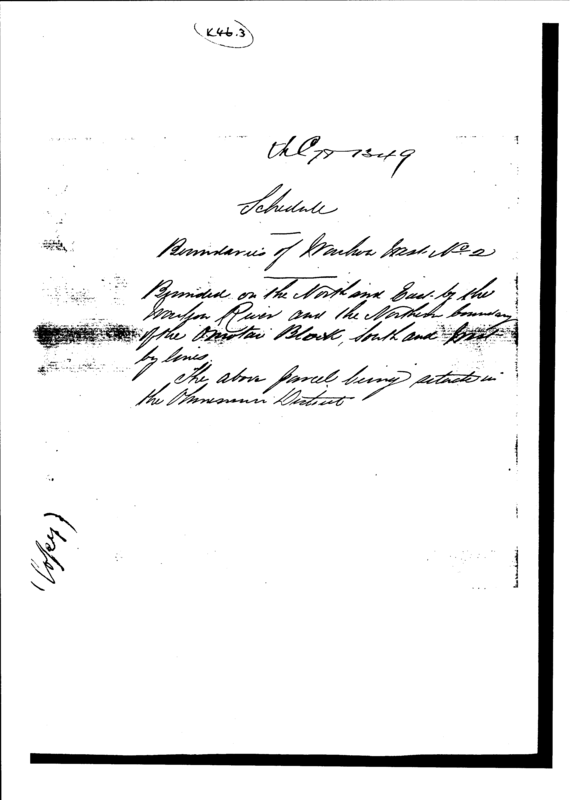 K46.3
1349
Schedule
Boundaries of West No 2
Bounded on the North and East by the
River and the Northern boundary
of the Block, South and West
by lines
The above parcel being situate in
the District
(Copy)